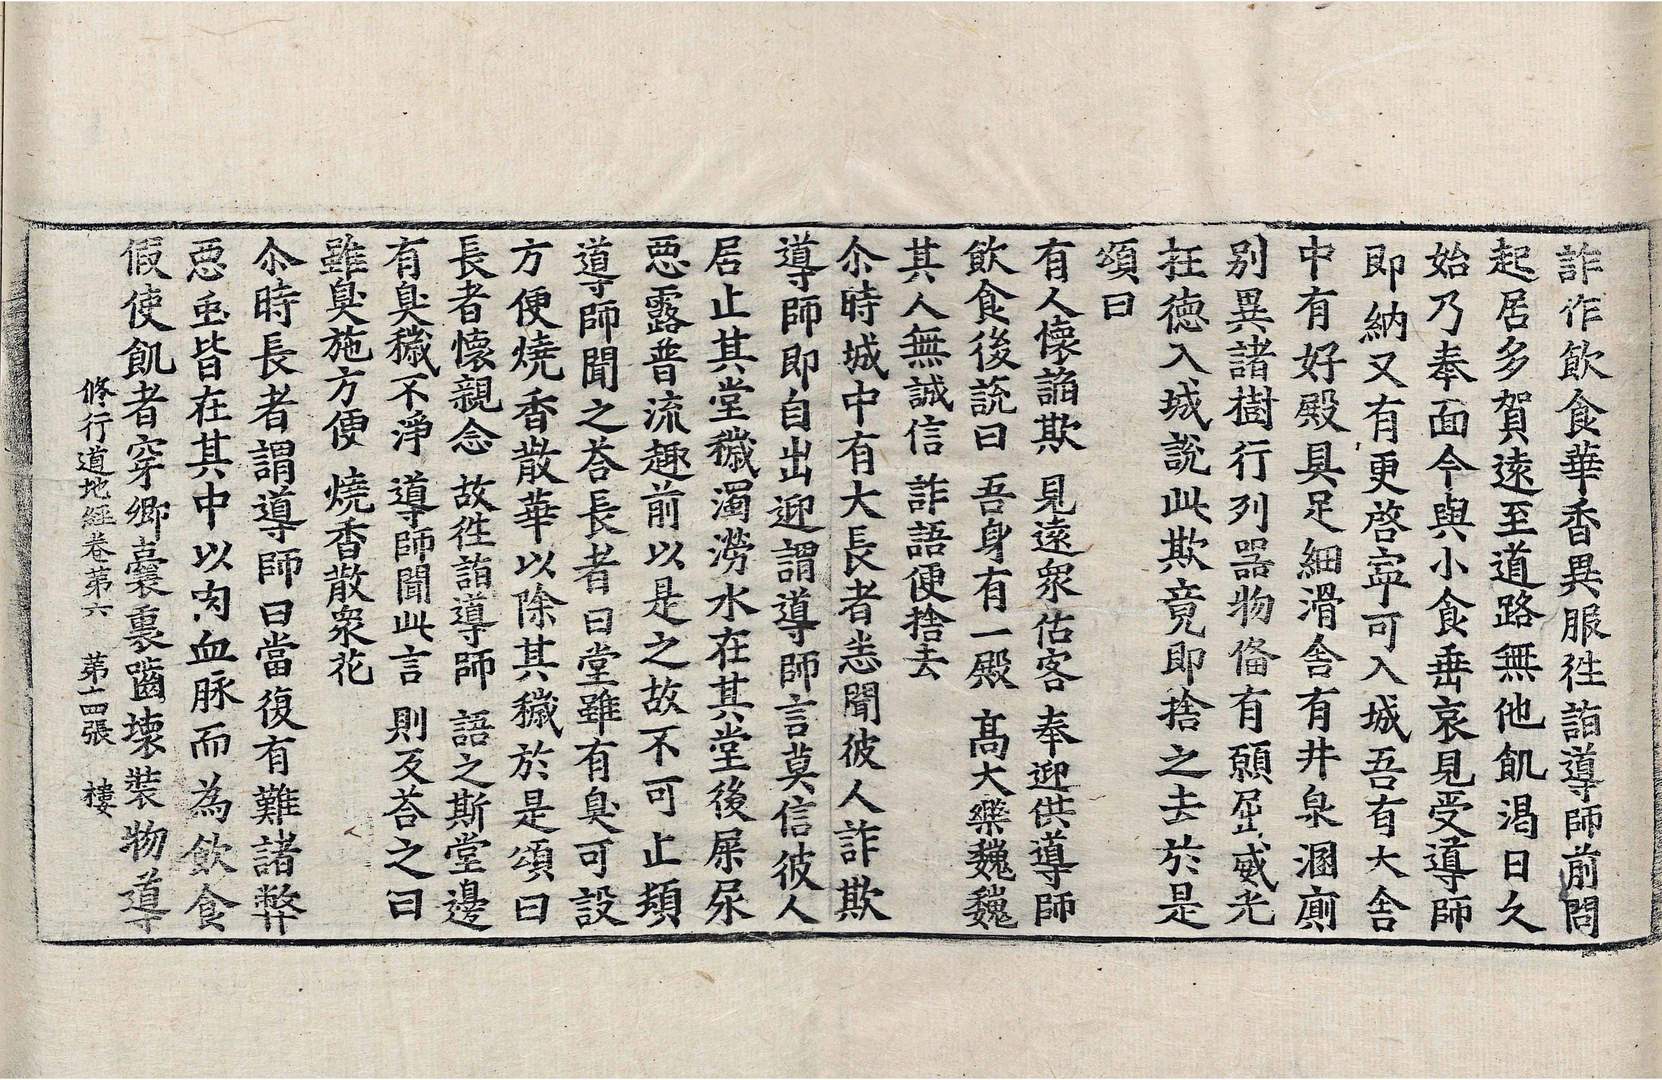 詐作飲食華香異服往詣導師前問
起居多賀遠至道路無他飢渴日久
始乃奉面今與小食垂哀見受導師
即納又有更啓寧可入城吾有大舍
中有好殿具足細滑舍有井泉溷廁
別異諸樹行列器物俻有願屈威光
抂德入城說此欺竟即捨之去於是
頌曰
有人懷謟欺　見遠衆估客　奉迎供導師
飲食後說曰　吾身有一殿　高大樂巍巍
其人無誠信　詐語便捨去
尒時城中有大長者恚聞彼人詐欺
導師即自出迎謂導師言莫信彼人
居止其堂穢濁澇水在其堂後屎尿
惡露普流趣前以是之故不可止頓
導師聞之荅長者曰堂雖有臭可設
方便燒香散華以除其穢於是頌曰
長者懷親念　故往詣導師　語之斯堂邊
有臭穢不淨　導師聞此言　則反荅之曰
雖臭施方便　燒香散衆花
尒時長者謂導師曰當復有難諸弊
惡䖝皆在其中以肉血脉而為飲食
假使飢者穿卿囊裏齧壞裝物導
修行道地經卷第六　第十四張　樓